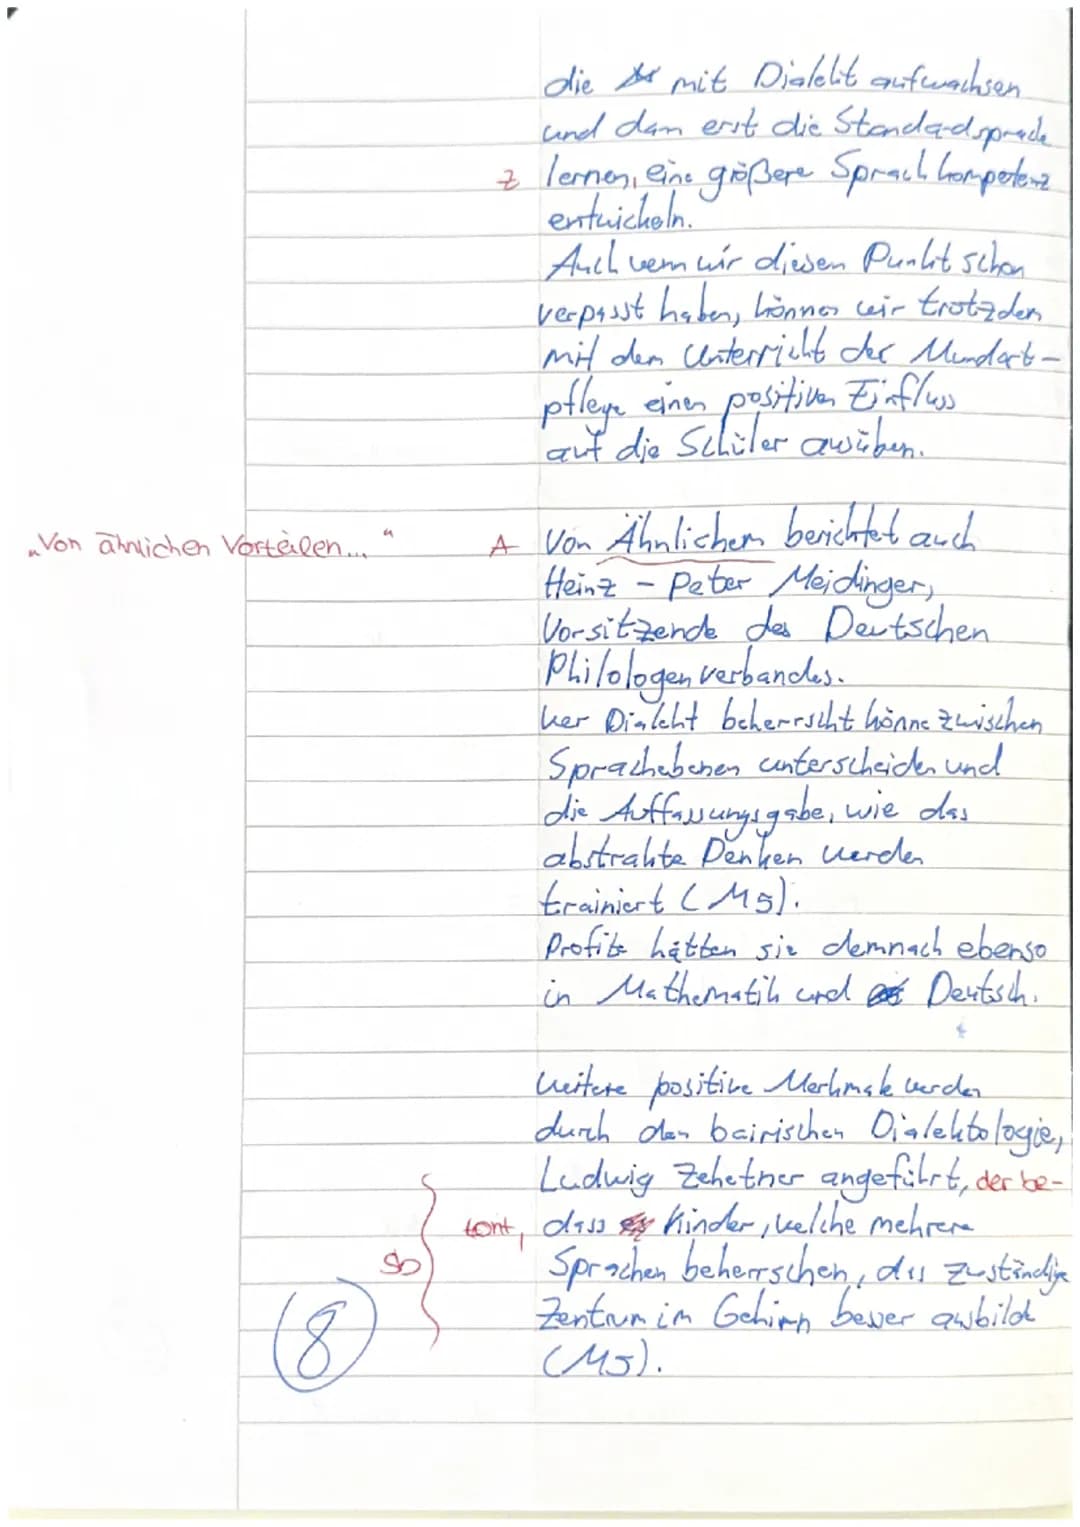 die mit Dialekt aufwachsen
und dan erst die Standardsprache
Z lernen, eine größere Sprachkompetenz
entwickeln.
Auch wenn wir diesen Punkt schon
verpasst haben, können wir trotzdem
mit dem Unterricht der Mundart-
pflege einen positiven Einfluss
auf die Schüler ausüben.
„Von ähnlichen Vorteilen..." A Von Ähnlichem berichtet auch
Heinz - Peter Meidinger,
Vorsitzende des Deutschen
Philologenverbandes.
Wer Dialekt beherrscht könne zwischen
Sprachebenen unterscheiden und
die Auffassungsgabe, wie das
abstrakte Denken werden
trainiert (M5).
Profite hätten sie demnach ebenso
in Mathematik und Deutsch.
Weitere positive Merkmale werden
durch den bairischen Dialektologie,
Ludwig Zehetner angeführt, der be-
tont, dass Kinder, welche mehrere
Sb Sprachen beherrschen, das zuständige
Zentrum im Gehirn besser ausbildt
8 (M5).